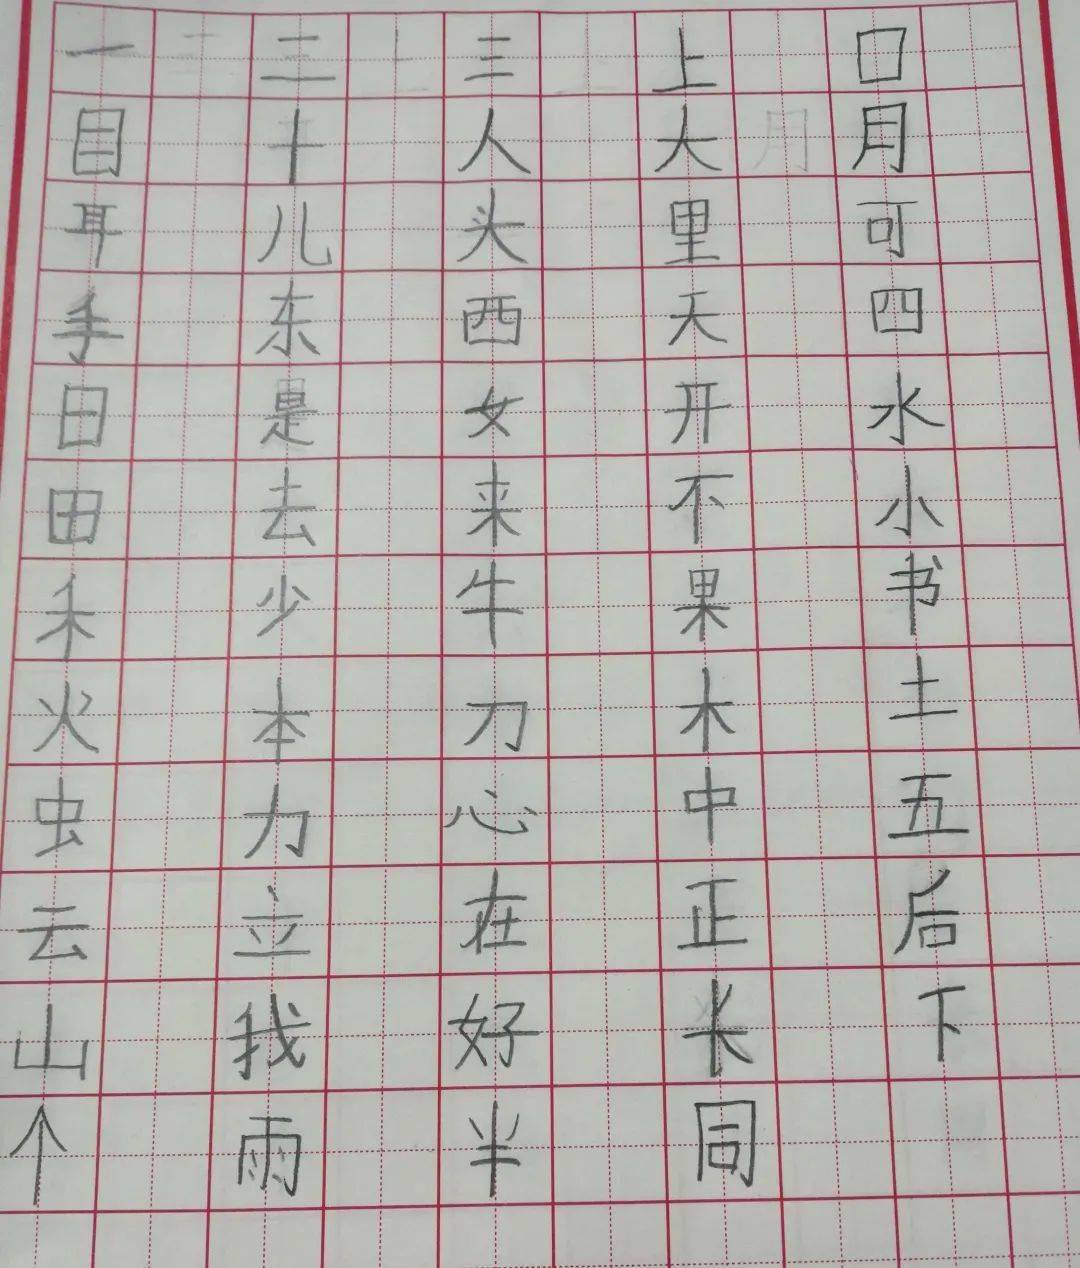 一 二 三 上 口
目 十 人 大 月 月
耳 儿 头 里 可
手 东 西 天 四
日 是 女 开 水
田 去 来 不 小
禾 少 牛 果 书
火 本 刀 木 土
虫 力 心 中 五
云 立 在 正 后
山 我 好 长 下
个 雨 半 同